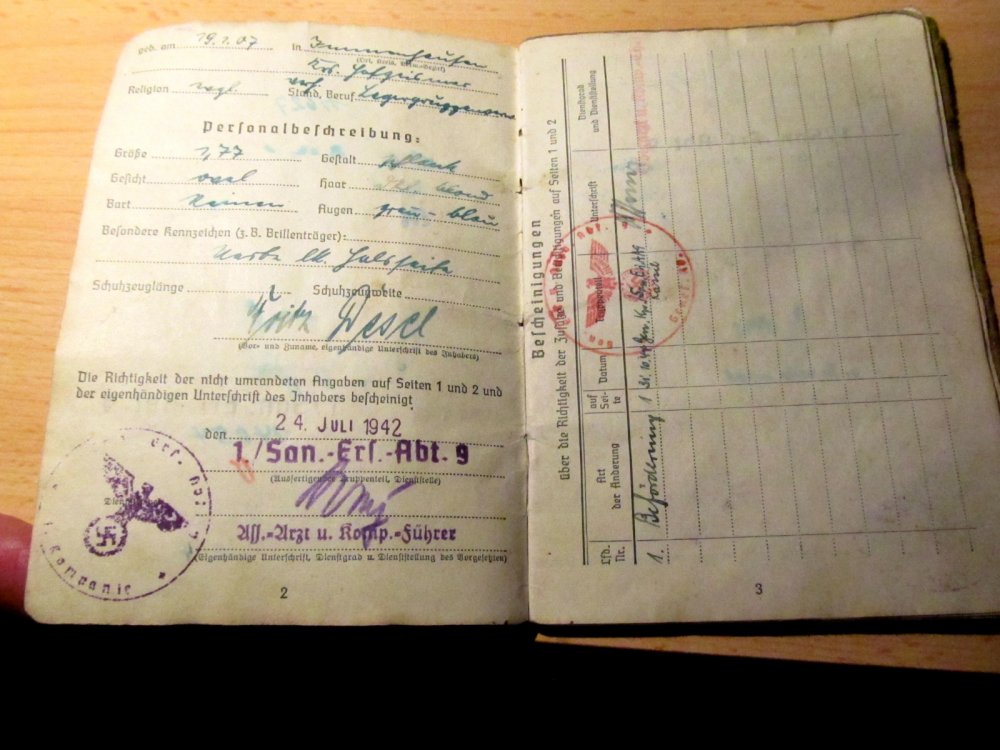 geb. am 19.1.07 in Immenhausen
(Ort, Kreis, Verw.-Bezirk)
Krs. Hofgeismar
Religion evgl. Stand, Beruf
Personalbeschreibung:
Größe 1,77 Gestalt schlank
Gesicht oval Haar dkl. blond
Bart keinen Augen grau-blau
Besondere Kennzeichen (z. B. Brillenträger):
Narbe lk. Halsseite
Schuhzeuglänge Schuhzeugweite
Fritz Desel
(Vor- und Zuname, eigenhändige Unterschrift des Inhabers)
Die Richtigkeit der nicht umrandeten Angaben auf Seiten 1 und 2 und
der eigenhändigen Unterschrift des Inhabers bescheinigt
den 24. JULI 1942
1./San.-Ers.-Abt. 9
(Ausfertigender Truppenteil, Dienststelle)
Ass.-Arzt u. Komp.-Führer
(Eigenhändige Unterschrift, Dienstgrad u. Dienststellung des Vorgesetzten)
Kompanie
2
Bescheinigungen
über die Richtigkeit der Zusätze und Berichtigungen auf Seiten 1 und 2
Lfd. Nr.
Art der Änderung
auf Seite
Datum
Truppenteil
Unterschrift
Dienstgrad und Dienststellung
1. Beförderung 1
3